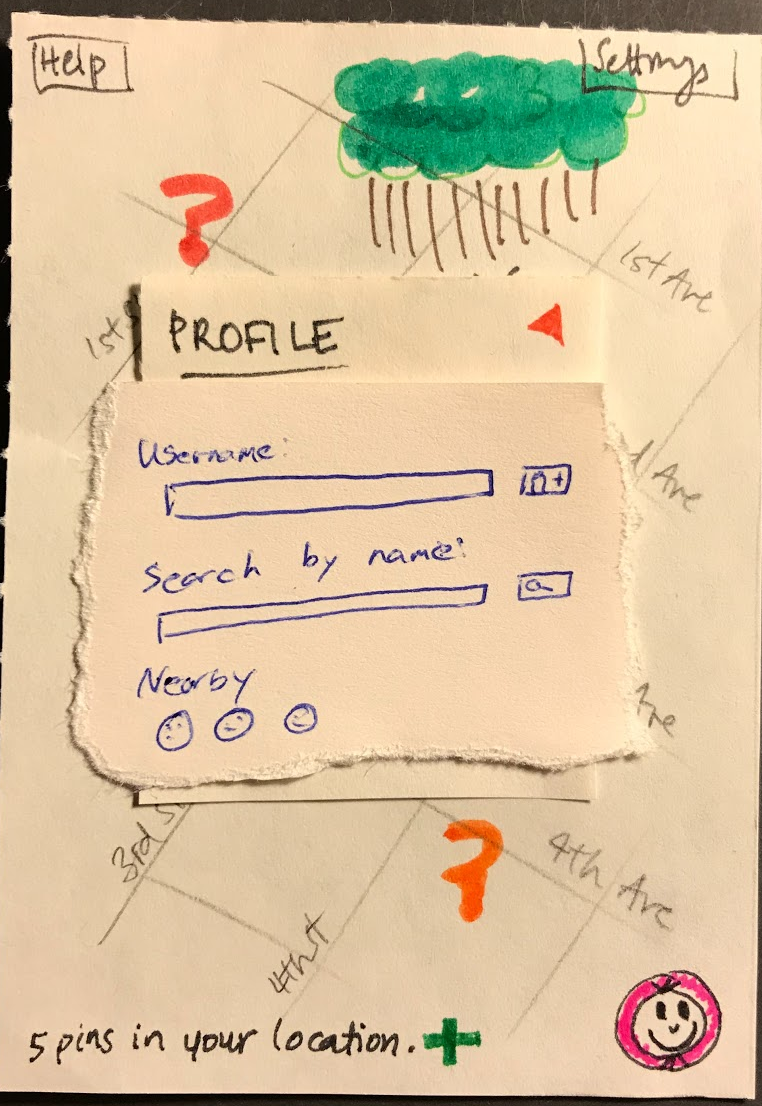 Help
Settings
?
1st Ave
1st
PROFILE
Username:
Ave
Search by name:
Nearby
3rd St
?
4th Ave
4th St
5 pins in your location. +